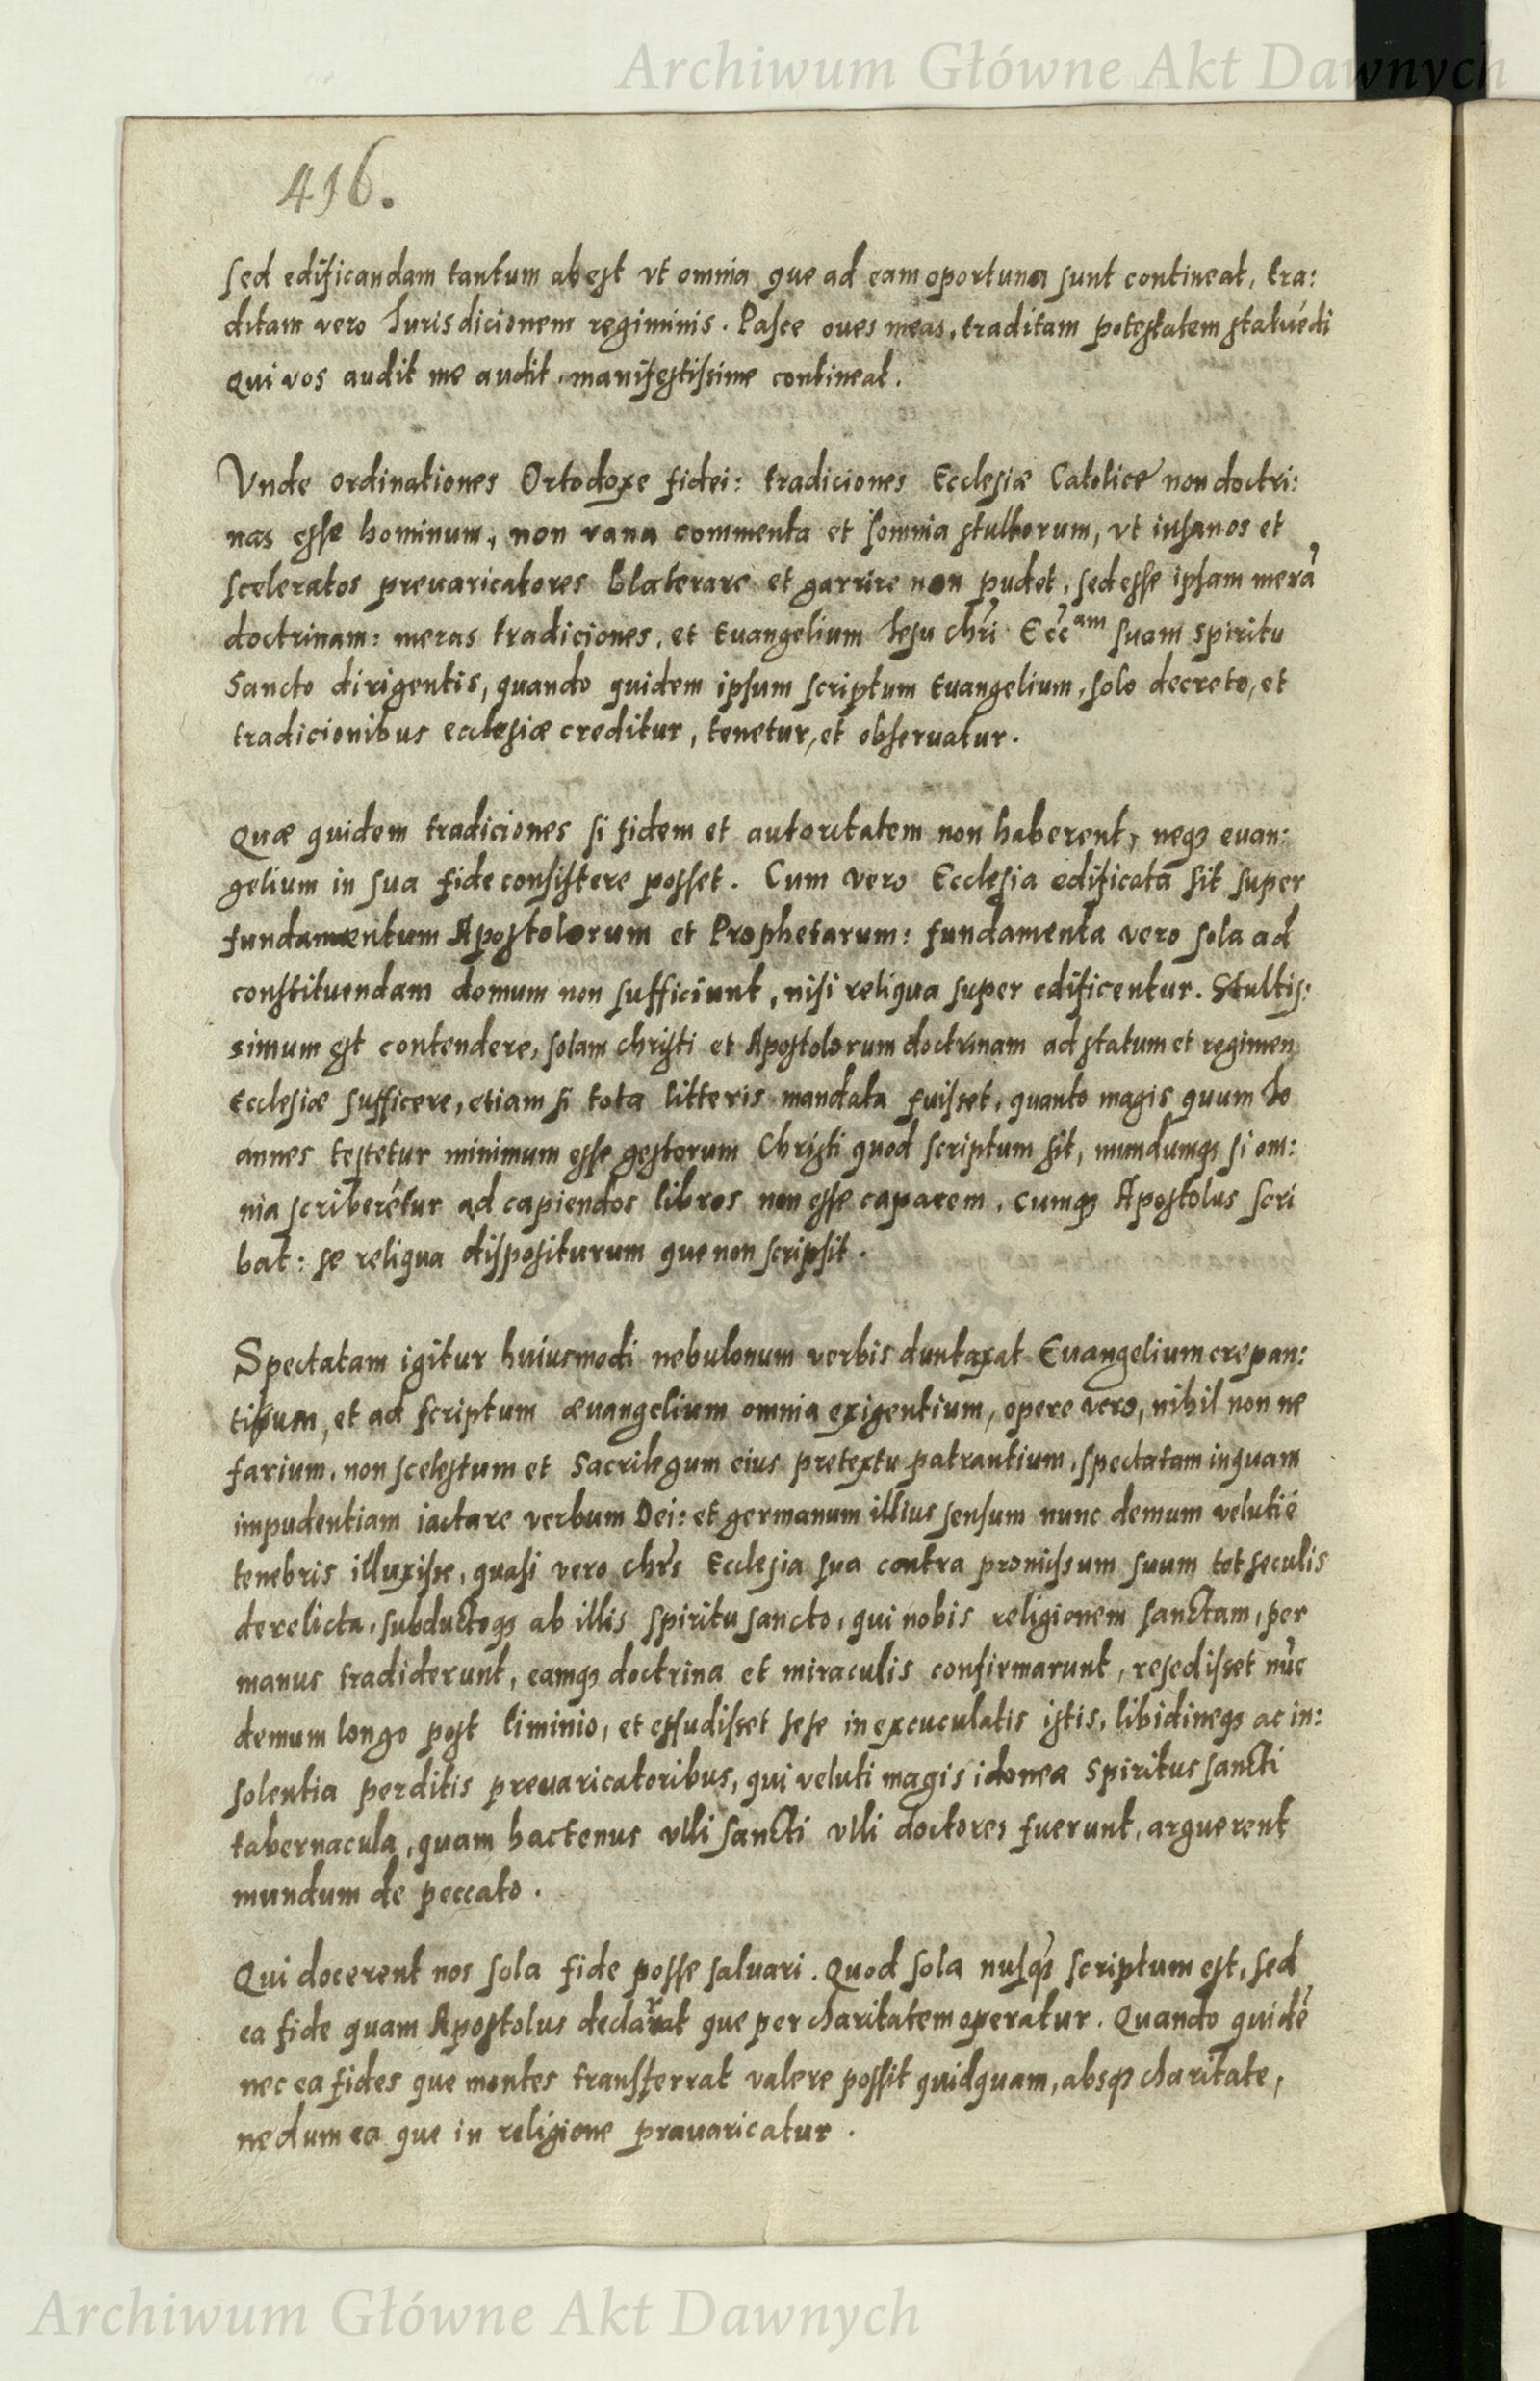 Archiwum Główne Akt Dawnych
416.
sed edificandam tantum abest vt omnia que ad eam oportuna sunt contineat, tra:
ditam vero Jurisdicionem regiminis. Pasce oues meas, traditam potestatem statuēdi
qui vos audit me audit, manifestissime contineat.
Vnde ordinationes Ortodoxe fidei: tradiciones Ecclesiæ Catolice non doctri:
nas esse hominum, non vana commenta et somnia stultorum, vt insanos et
sceleratos preuaricatores blaterare et garrire non pudet, sed esse ipsam merā
doctrinam: meras tradiciones, et Euangelium Jesu chrī Eccam suam spiritu
Sancto dirigentis, quando quidem ipsum scriptum Euangelium, solo decreto, et
tradicionibus ecclesiæ creditur, tenetur, et obseruatur.
Quæ quidem tradiciones si fidem et autoritatem non haberent, neqȝ euan:
gelium in sua fide consistere posset. Cum vero Ecclesia edificata sit super
fundamentum Apostolorum et Prophetarum: fundamenta vero sola ad
constituendam domum non sufficiunt, nisi reliqua super edificentur. Stultis:
simum est contendere, solam christi et Apostolorum doctrinam ad statum et regimen
Ecclesiæ sufficere, etiam si tota litteris mandata fuisset, quanto magis quum Jo
annes testetur minimum esse gestorum Christi quod scriptum sit, mundumqȝ si om:
nia scriberētur ad capiendos libros non esse caparem. cumqȝ Apostolus scri
bat: se reliqua dispositurum que non scripsit.
Spectatam igitur huiusmodi nebulonum verbis duntaxat Euangelium crepan:
tium, et ad scriptum æuangelium omnia exigentium, opere vero, nihil non ne
farium, non scelestum et Sacrilegum eius pretextu patrantium, spectatam inquam
impudentiam iactare verbum Dei: et germanum illius sensum nunc demum veluti ē
tenebris illuxisse, quasi vero chrs Ecclesia sua contra promissum suum tot seculis
derelicta, subductoqȝ ab illis spiritu sancto, qui nobis religionem sanctam, per
manus tradiderunt, eamqȝ doctrina et miraculis confirmarunt, resedisset nūc
demum longo post liminio, et effudisset sese in excuculatis istis, libidineqȝ ac in:
solentia perditis preuaricatoribus, qui veluti magis idonea Spiritus sancti
tabernacula, quam hactenus vlli sancti vlli doctores fuerunt, arguerent
mundum de peccato.
Qui docerent nos sola fide posse saluari. Quod sola nusqȝ scriptum est, sed
ea fide quam Apostolus declarat que per charitatem operatur. Quando quidē
nec ea fides que montes transferrat valere possit quidquam, absqȝ charitate,
nedum ea que in religione prauaricatur.
Archiwum Główne Akt Dawnych